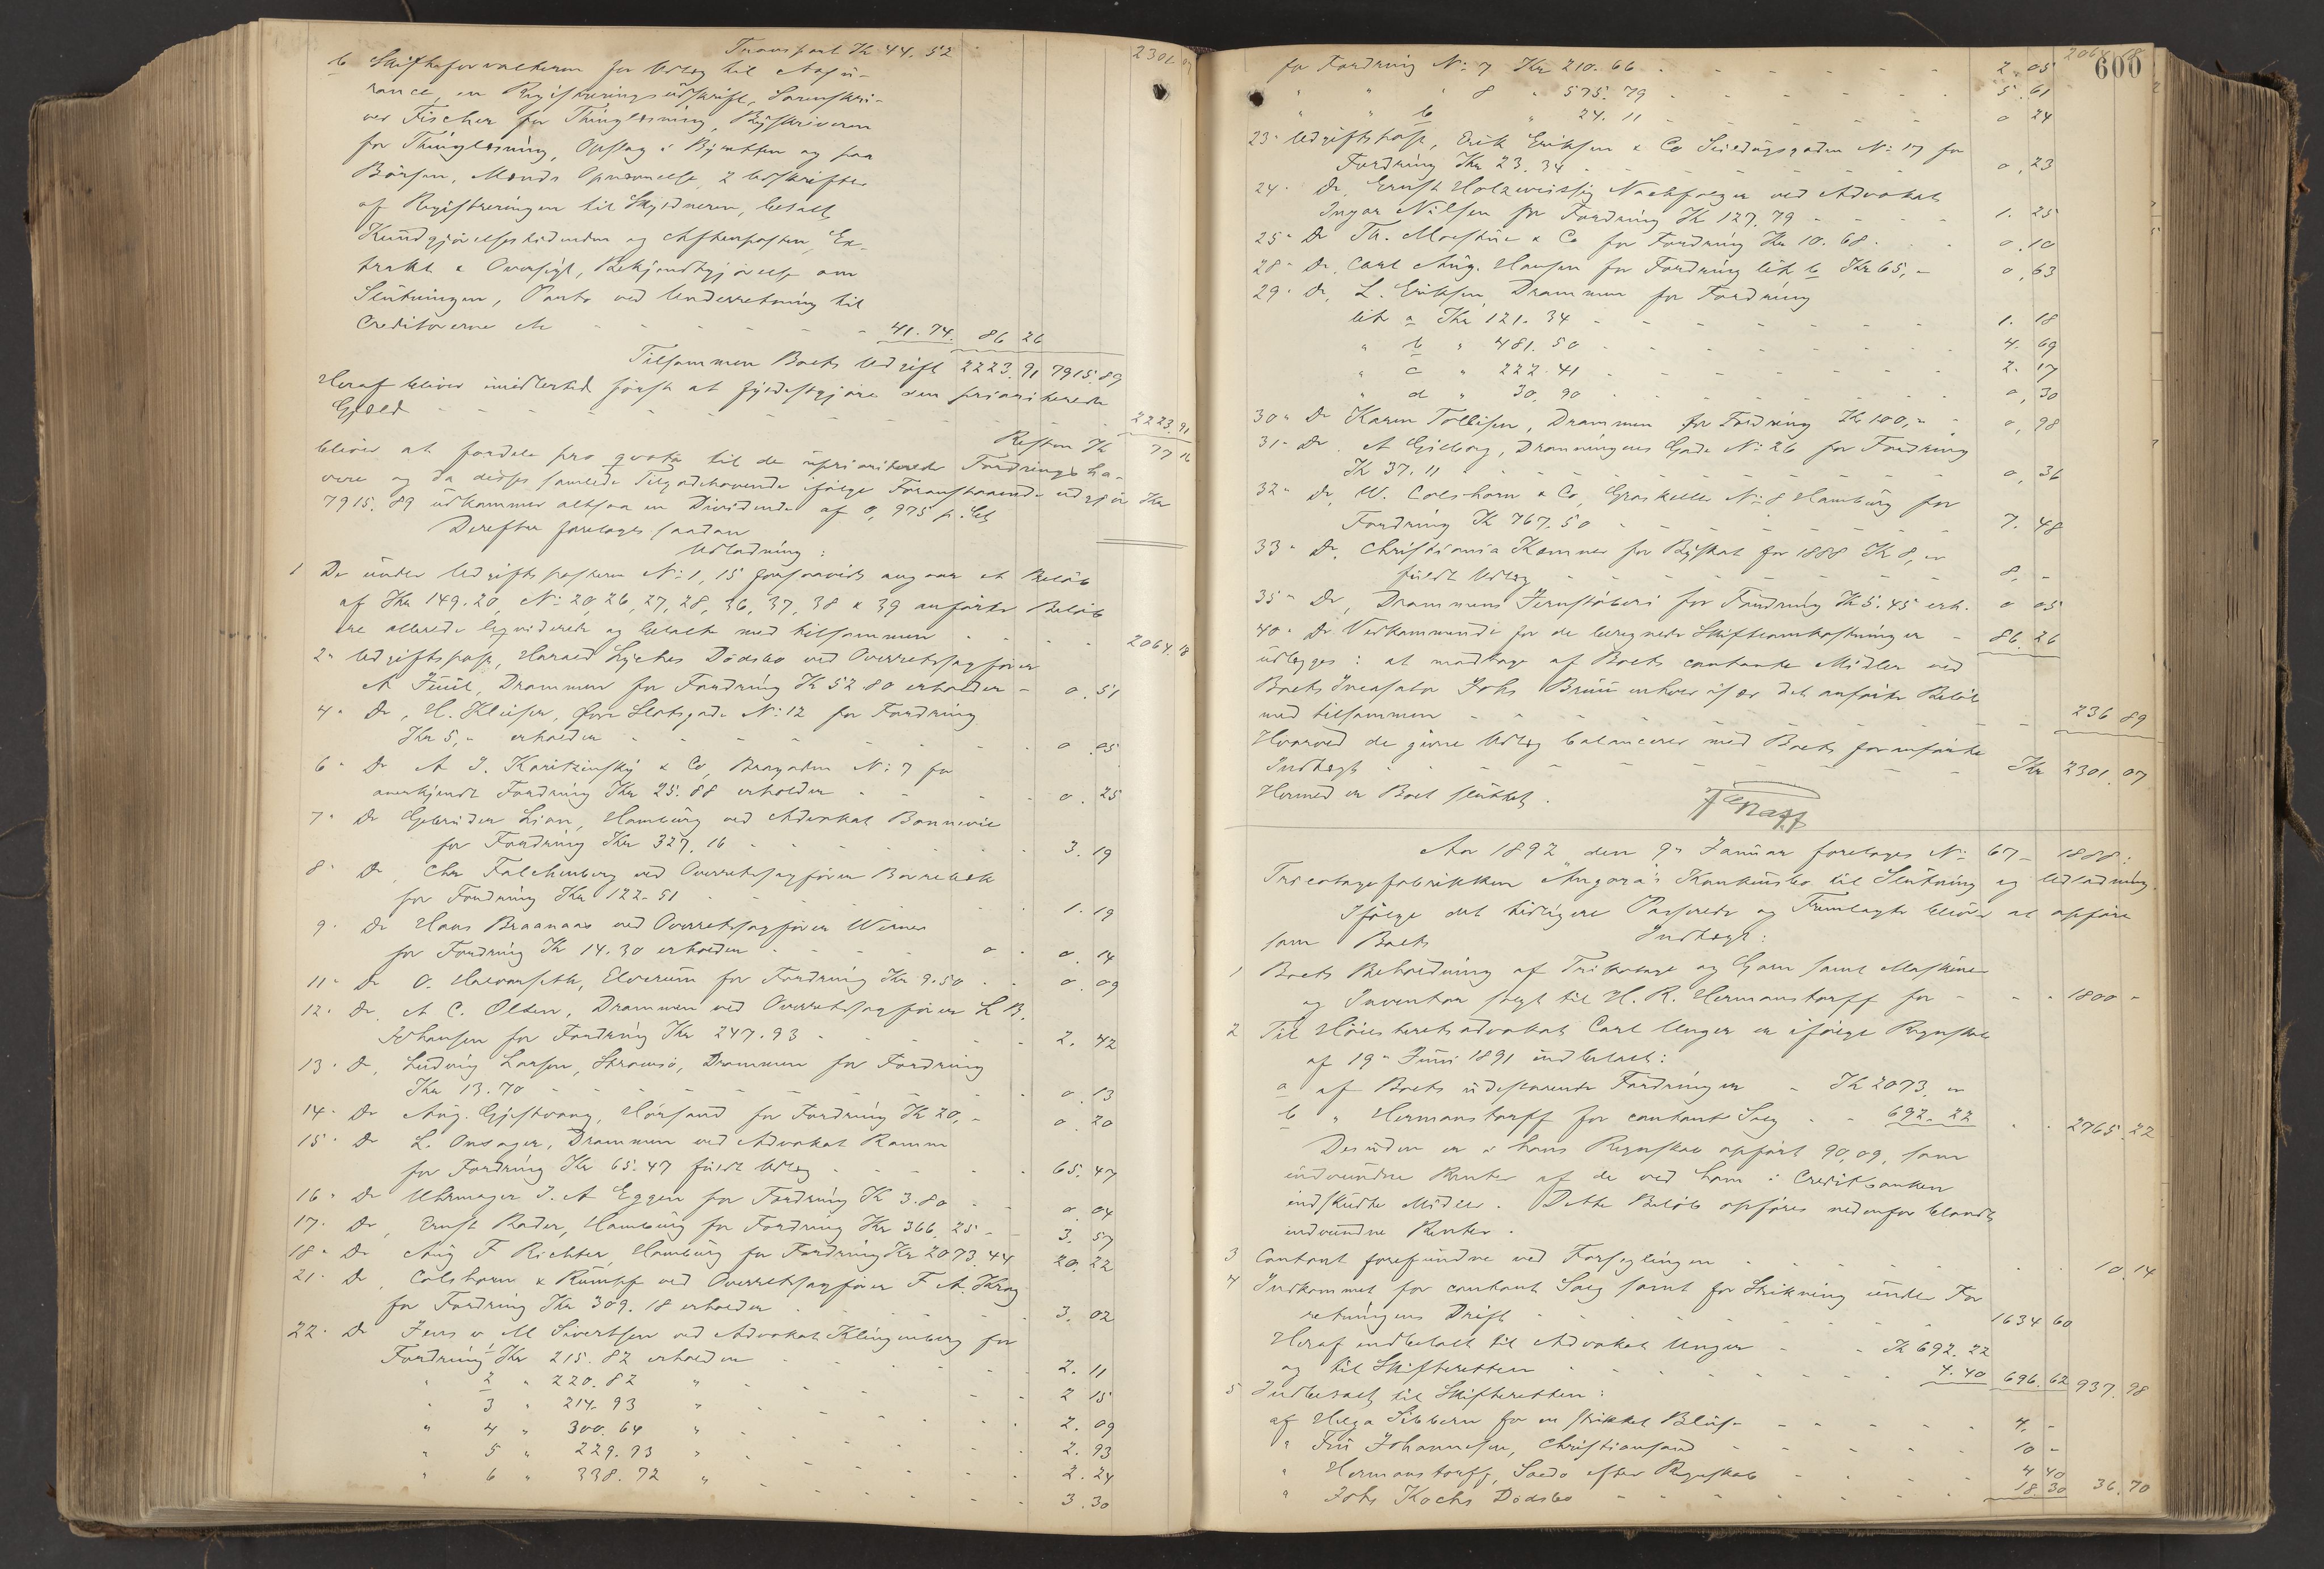 Transport Kr 44. 52
2301. 07
b Skifteforvalteren for Udlæg til Assu-
rance, en Registreringsudskrift, Sorenskri-
ver Fischer for Thinglæsning, Byskriveren
for Thinglæsning, Opslag i Byretten og paa
Börsen, Mænds Opnævnelse, 2 Udskrifter
af Registreringen til Skyldneren, betalt
Kundgjörelsestidenden og Aftenposten, Ex-
trakt & Oversigt, Bekjendtgjörelse om
Slutningen, Porto ved Underretning til
Creditorerne etc - - - - - - 41. 74. 86 26
Tilsammen Boets Udgift 2223. 91 7915. 89
Heraf bliver imidlertid først at fyldestgjøre den prioriterede
Gjæld - - - - - - 2223. 91
Resten Kr 77 16
bliver at fordele pro qvota til de uprioriterede Fordringsha-
vere og da disses samlede Tilgodehavende ifølge Foranstaaende udgjör Kr
7915. 89 udkommer altsaa en Dividende af 0,975 p. Ct.
Derefter foretages saadan
Udlodning:
1 De under Udgiftsposterne No 1, 15 forsaavidt angaar et Beløb
af Kr 149. 20, No 20, 26, 27, 28, 36, 37, 38 & 39 anførte Beløb
ere allerede liqviderede og betalte med tilsammen - - - 2064. 18
2" Udgiftspost, Harald Lyches Dödsbo ved Overretssagfører
A Juul, Drammen for Fordring Kr 52 80 erholder - 0. 51
4" Do, H. Kleiser, Øvre Slotsgade No 12 for Fordring
Kr 5, " erholder - - - - - 0. 05
6" Do A J. Karitzinsky & Co, Brogaden No 7 for
anerkjendt Fordring Kr 25. 88 erholder - - 0. 25
7" Do Gebrüder Lion, Hamburg ved Advokat Bonnevie
for Fordring Kr 327. 16 - - - 3. 19
8" Do, Chr Falchenberg ved Overretssagfører Borrebæk
for Fordring Kr 122. 51 - - - 1. 19
9. Do Hans Braanaas ved Overretssagfører Wiener
for Fordring Kr 14. 30 erholder - - - 0. 14
11" Do O. Halvorseth, Elverum for Fordring Kr 9. 50 - 0. 09
12. Do, A C. Olsen, Drammen ved Overretssagfører L B.
Johansen for Fordring Kr 247. 93 - - - 2. 42
13. Do, Ludvig Larsen, Strømsö, Drammen for Fordring
Kr 13. 70 - - - - - 0. 13
14. Do Aug. Gjestvang, Hörsand for Fordring Kr 20, - 0. 20
15. Do L. Onsager, Drammen ved Advokat Ramm
for Fordring Kr 65. 47 fuldt Udlæg - - - 65. 47
16" Do Uhrmager J. A Eggen for Fordring Kr 3. 80 - 0. 04
17. Do, Ernst Rader, Hamburg for Fordring Kr 366. 25 - 3. 57
18" Do Aug F Richter, Hamburg for Fordring Kr 2073. 44 20. 22
21. Do, Colshorn & Rümpf ved Overretssagfører F A. Krog
for Fordring Kr 309. 18 erholder - - - 3. 02
22. Do Jens v. M Sivertsen ved Advokat Klingenberg for
Fordring 1 Kr 215. 82 erholder - - - 2. 11
" 2 " 220. 82 " - - - 2 15
" 3 " 214. 93 " - - - 2. 09
" 4 " 300. 64 " - - - 2. 93
" 5 " 229. 93 " - - - 2. 24
" 6 " 338. 72 " - - - 3. 30
2064. 18
600
for Fordring No 7 Kr 210. 66 - - - 2. 05
" " " 8 " 575. 79 - - - 5. 61
" " b " 24. 11 - - - 0 24
23" Udgiftspost, Erik Eriksen & Co Skildugsgaden No 17 for
Fordring Kr 23. 34 - - - 0, 23
24. Do, Ernst Holzweissig Nachfolger ved Advokat
Ingar Nilsen for Fordring Kr 127. 79 - - - 1. 25
25" Do Th. Moestue & Co for Fordring Kr 10. 68 - 0. 10
28" Do, Carl Aug. Hansen for Fordring litr b Kr 65, - 0, 63
29. Do, L. Eriksen, Drammen for Fordring
litr a Kr 121. 34 - - - 1. 18
" b " 481. 50 - - - 4. 69
" c " 222. 41 - - - 2. 17
" d " 30. 90 - - - 0, 30
30" Do Karen Tollefsen, Drammen for Fordring Kr 100, " - 0, 98
31" Do, A Gjeborg, Dronningens Gade No 26 for Fordring
Kr 37. 11 - - - 0, 36
32" Do, W. Colshorn & Co, Graskeller No 8 Hamburg for
Fordring Kr 767. 50 - - - 7. 48
33" Do, Christiania Kæmner for Byskat for 1888 Kr 8, "
fuldt Udlæg - - - 8, -
35" Do, Drammens Jernstøberi for Fordring Kr 5. 45 erh. 0 05
40. Do Vedkommende for de beregnede Skifteomkostninger - 86. 26
udlægges: at modtage af Boets contante Midler ved
Boets Incasator Johs Bruun enhver især det anførte Beløb
med tilsammen - - - 236 89
Hvorved de givne Udlæg balancerer med Boets foranførte
Indtægt - - - Kr 2301. 07
Hermed er Boet sluttet.
Aar 1892 den 9" Januar foretoges No 67 - 1888:
Tricotagefabrikken "Angora"s Konkursbo til Slutning og Udlodning.
Ifølge det tidligere Passerede og Fremlagte bliver at opføre
som Boets Indtægt:
1 Boets Beholdning af Trikotage og Garn samt Maskiner
og Inventar solgt til H. R. Hermanstorff for - - - 1800 -
2 Til Höiesteretsadvokat Carl Unger er ifølge Regnskab
af 19" Juni 1891 indbetalt:
a af Boets udestaaende Fordringer - Kr 2073, "
b " Hermanstorff for contant Salg - - 692. 22 - - 2765. 22
Desuden er i hans Regnskab opført 90,09, som
indvundne Renter af de ved ham i Creditbanken
indskudte Midler. Dette Beløb opføres nedenfor blandt
indvundne Renter.
3 Contant forefundne ved Forseglingen - - - 10. 14
4 Indkommet for contant Salg samt for Strikning under For
retningens Drift - - - 1634 60
Heraf indbetalt til Advokat Unger - - Kr 692. 22
og til Skifteretten - - - 4. 40 696. 62 937. 98
5 Indbetalt til Skifteretten:
af Helga Sibbern for en strikket Bluse - - - 4, -
" Frü Johannesen, Christiansand - - - 10 -
" Hermanstorff, Saldo efter Regnskab - - - 4 40
" Johs Kochs Dödsbo - - - 18. 30 36. 70